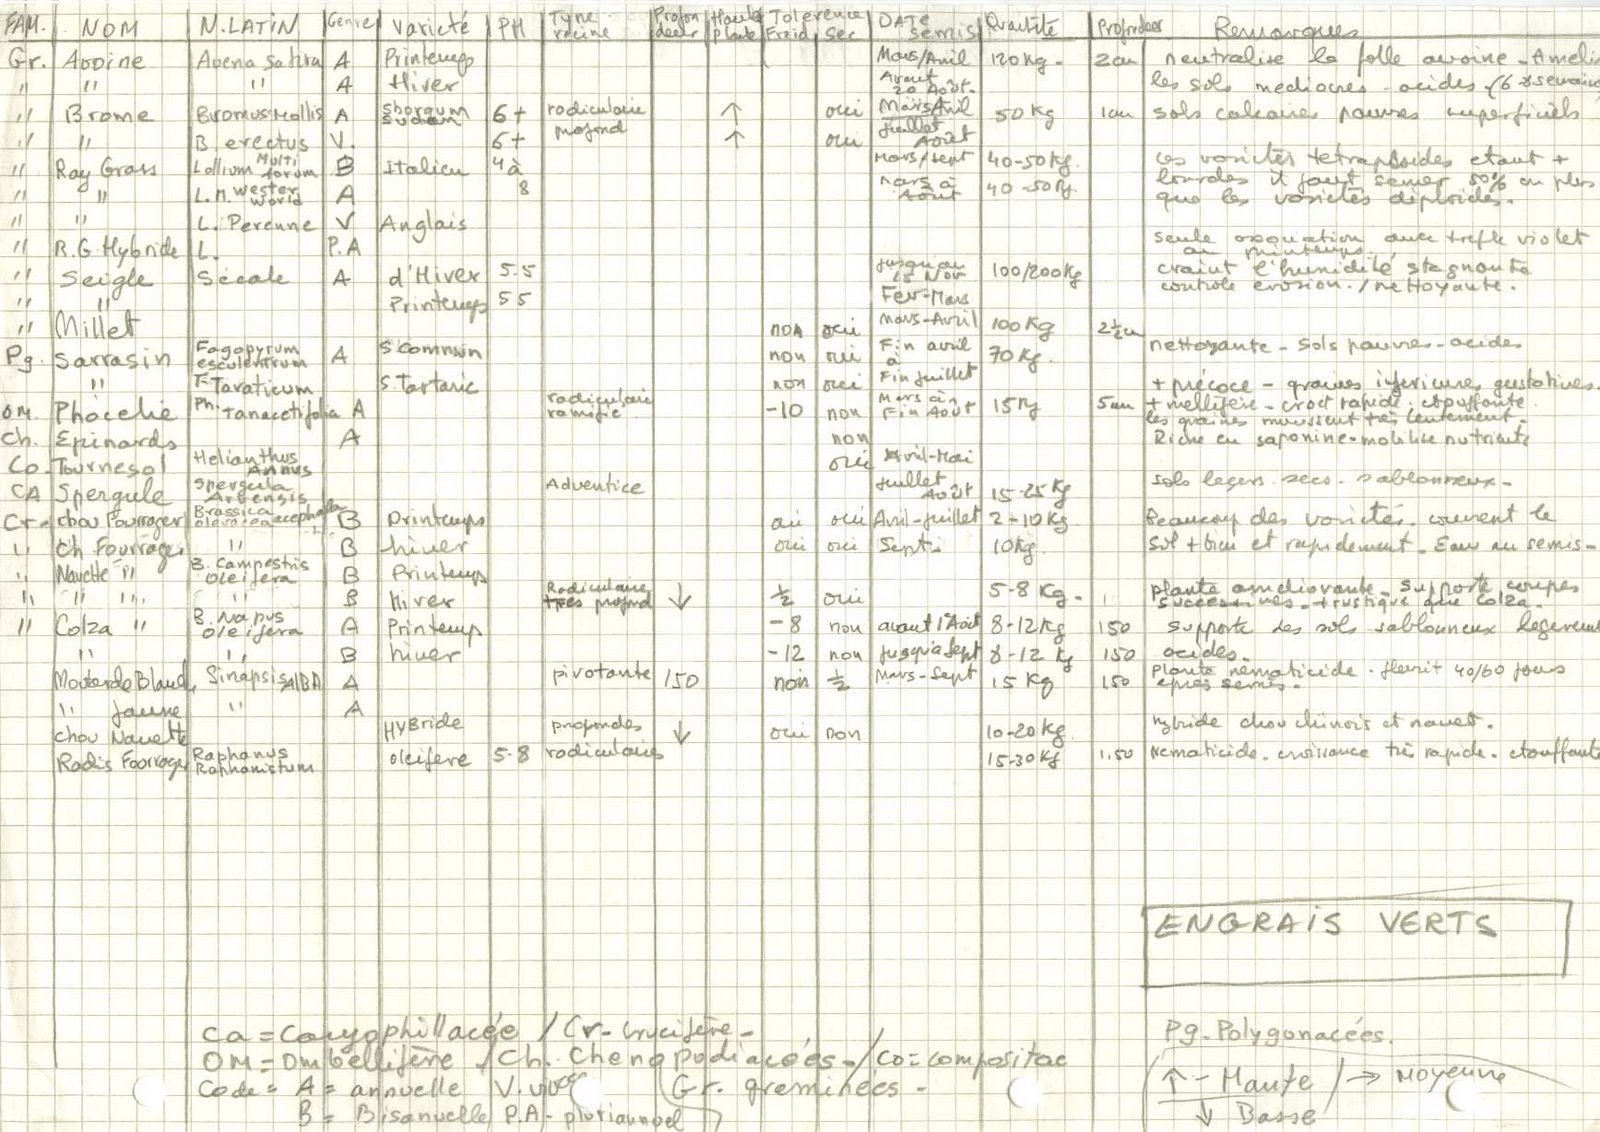 FAM. NOM N.LATIN Genre Varieté PH Type racine Profondeur Haut plante Tolerence Froid sec DATE semis Quantité Profondeur Remarques
Gr. Avoine Avena Sativa A Printemps Mars/Avril 120Kg. 2cm neutralise la folle avoine - Amelio
" " " A Hiver Avant 20 Août. les sols mediocres - acides - (6 semaines
" Brome Bromus Mollis A 6+ radiculaire profond ↑ oui Mars Avril 50 Kg 1cm sols calcaires pauvres superficiels
" " B. erectus V. 6+ ↑ oui Juillet Août
" Ray Grass Lollium Multi forum B Italien 4 à 8 Mars/Sept 40-50Kg. Les varietés tetraploides etant +
" " L.M. Wester World A Mars à Août 40-50Kg lourdes il faut semer 50% en plus
que les varietés diploides.
" " L. Perenne V Anglais
" R.G. Hybride L. P.A seule association avec trefle violet au printemps
" Seigle Sécale A d'Hiver 5.5 jusqu'au 15 Nov 100/200Kg craint l'humidité stagnante
" " Printemps 5.5 Fev-Mars controle erosion./nettoyante.
" Millet non oui Mars-Avril 100Kg 2½cm
Pg. Sarrasin Fagopyrum esculentrum A S. Commun non oui Fin avril à Fin Juillet 70Kg. nettoyante - sols pauvres - acides
" F. Tataticum S. Tartarie non oui + précoce - graines inferieures gustatives.
OM. Phacelie Ph. Tanacetifolia A radiculaire ramifié -10 non Mars à Fin Août 15Kg 5cm + mellifère - croct rapide - etouffante
les graines murissent très lentement.
Ch. Epinards A non Riche en saponine - mobilise nutrients
Co. Tournesol Helianthus Annus oui Avril-Mai
CA Spergule Spergula Arbensis Adventice Juillet Août 15-25Kg sols legers - secs - sablonneux -
Cr. chou Fourrager Brassica oleracea acephala B Printemps oui oui Avril-Juillet 2-10Kg. Beaucoup des varietés - couvrent le
" Ch Fourrager " B hiver oui oui Sept. 10Kg. sol + bien et rapidement. Eau au semis -
" Navette " B. Campestris oleifera B Printemps
" " " B hiver Radiculaire très profond ↓ ½ oui 5-8 Kg. plante améliorante - supporte coupes
successives - + rustique que Colza.
" Colza " B. Napus oleifera A Printemps -8 non avant 1 Août 8-12Kg 150 supporte des sols sablonneux legerement
" " B hiver -12 non Jusqu'a Sept 8-12 Kg 150 acides.
Moutarde Blanche Sinapsis AlBA A pivotante 150 non ½ Mars-Sept 15 Kg 150 Plante nematicide - fleurit 40/60 jours après semis.
" Jaune " A
chou Navette HYBride profondes ↓ oui non 10-20Kg. hybride chou chinois et navet.
Radis Fourrager Raphanus Raphanistum oleifere 5.8 radiculaires 15-30Kg 1.50 Nematicide. croissance très rapide - etouffante
ENGRAIS VERTS
ca = Caryophillacée / Cr - crucifère -
OM = Ombellifère / Ch. Chenopodiacées - / Co = compositae
Code = A = annuelle V. Gr. graminées -
B = Bisanuelle P.A - pluriannuel
Pg - Polygonacées.
↑ - Haute / → Moyenne
↓ Basse